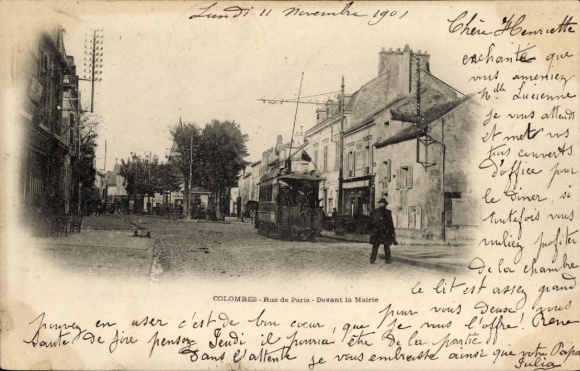 Lundi 11 Novembre 1901
Chère Henriette
enchanté que
vous ameniez
Mlle Lucienne
je vous attends
et mets vos
trois couverts
d'office pour
le dîner, si
toutefois vous
vouliez profiter
de la chambre
le lit est assez grand
COLOMBES - Rue de Paris - Devant la Mairie
pour vous deux vous
pouvez en user c'est de bon coeur, que je vous l'offre! René
saute de joie pensez Jeudi il pourra être de la partie
Dans l'attente je vous embrasse ainsi que votre Papa
Julia